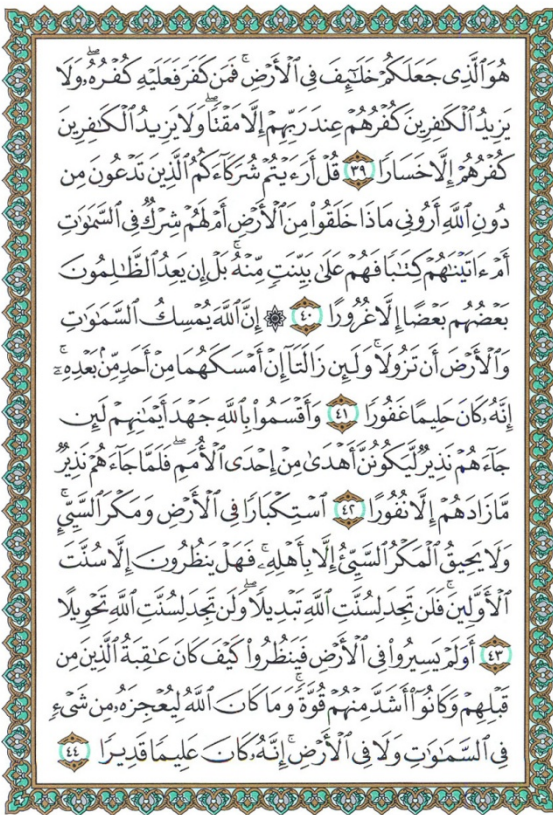 هُوَ ٱلَّذِى جَعَلَكُمْ خَلَـٰٓئِفَ فِى ٱلْأَرْضِ ۚ فَمَن كَفَرَ فَعَلَيْهِ كُفْرُهُۥ ۖ وَلَا
يَزِيدُ ٱلْكَـٰفِرِينَ كُفْرُهُمْ عِندَ رَبِّهِمْ إِلَّا مَقْتًا ۖ وَلَا يَزِيدُ ٱلْكَـٰفِرِينَ
كُفْرُهُمْ إِلَّا خَسَارًا ٣٩ قُلْ أَرَءَيْتُمْ شُرَكَآءَكُمُ ٱلَّذِينَ تَدْعُونَ مِن
دُونِ ٱللَّهِ أَرُونِى مَاذَا خَلَقُوا۟ مِنَ ٱلْأَرْضِ أَمْ لَهُمْ شِرْكٌ فِى ٱلسَّمَـٰوَٰتِ
أَمْ ءَاتَيْنَـٰهُمْ كِتَـٰبًا فَهُمْ عَلَىٰ بَيِّنَتٍ مِّنْهُ ۚ بَلْ إِن يَعِدُ ٱلظَّـٰلِمُونَ
بَعْضُهُم بَعْضًا إِلَّا غُرُورًا ٤٠ ۞ إِنَّ ٱللَّهَ يُمْسِكُ ٱلسَّمَـٰوَٰتِ
وَٱلْأَرْضَ أَن تَزُولَا ۚ وَلَئِن زَالَتَآ إِنْ أَمْسَكَهُمَا مِنْ أَحَدٍ مِّنۢ بَعْدِهِۦٓ ۚ
إِنَّهُۥ كَانَ حَلِيمًا غَفُورًا ٤١ وَأَقْسَمُوا۟ بِٱللَّهِ جَهْدَ أَيْمَـٰنِهِمْ لَئِن
جَآءَهُمْ نَذِيرٌ لَّيَكُونُنَّ أَهْدَىٰ مِنْ إِحْدَى ٱلْأُمَمِ ۖ فَلَمَّا جَآءَهُمْ نَذِيرٌ
مَّا زَادَهُمْ إِلَّا نُفُورًا ٤٢ ٱسْتِكْبَارًا فِى ٱلْأَرْضِ وَمَكْرَ ٱلسَّيِّئِ ۚ
وَلَا يَحِيقُ ٱلْمَكْرُ ٱلسَّيِّئُ إِلَّا بِأَهْلِهِۦ ۚ فَهَلْ يَنظُرُونَ إِلَّا سُنَّتَ
ٱلْأَوَّلِينَ ۚ فَلَن تَجِدَ لِسُنَّتِ ٱللَّهِ تَبْدِيلًا ۖ وَلَن تَجِدَ لِسُنَّتِ ٱللَّهِ تَحْوِيلًا
٤٣ أَوَلَمْ يَسِيرُوا۟ فِى ٱلْأَرْضِ فَيَنظُرُوا۟ كَيْفَ كَانَ عَـٰقِبَةُ ٱلَّذِينَ مِن
قَبْلِهِمْ وَكَانُوٓا۟ أَشَدَّ مِنْهُمْ قُوَّةً ۚ وَمَا كَانَ ٱللَّهُ لِيُعْجِزَهُۥ مِن شَىْءٍ
فِى ٱلسَّمَـٰوَٰتِ وَلَا فِى ٱلْأَرْضِ ۚ إِنَّهُۥ كَانَ عَلِيمًا قَدِيرًا ٤٤